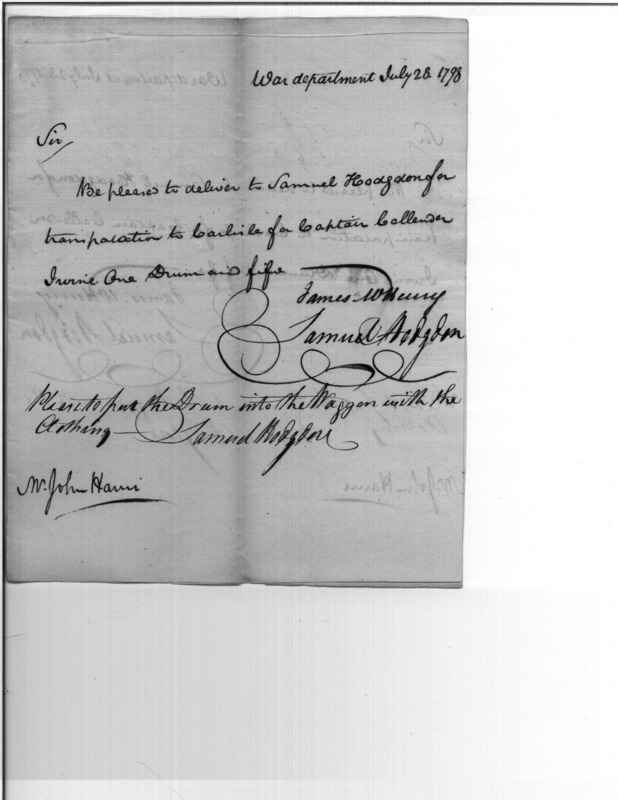 War department July 28. 1798
Sir
Be pleased to deliver to Samuel Hodgdon for
transportation to Carlisle for Captain Callender
Irvine One Drum and fife
James McHenry
Samuel Hodgdon
Please to put the Drum into the Waggon with the
Clothing Samuel Hodgdon
Mr. John Harris